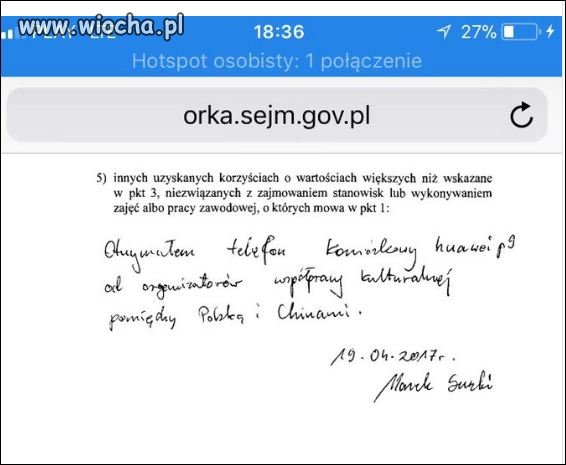 www.wiocha.pl
18:36
27%
Hotspot osobisty: 1 połączenie
orka.sejm.gov.pl
5) innych uzyskanych korzyściach o wartościach większych niż wskazane
w pkt 3, niezwiązanych z zajmowaniem stanowisk lub wykonywaniem
zajęć albo pracy zawodowej, o których mowa w pkt 1:
Otrzymałem telefon komórkowy huawei p9
od organizatorów współpracy kulturalnej
pomiędzy Polską i Chinami.
19.04.2017r.
Marek Suski